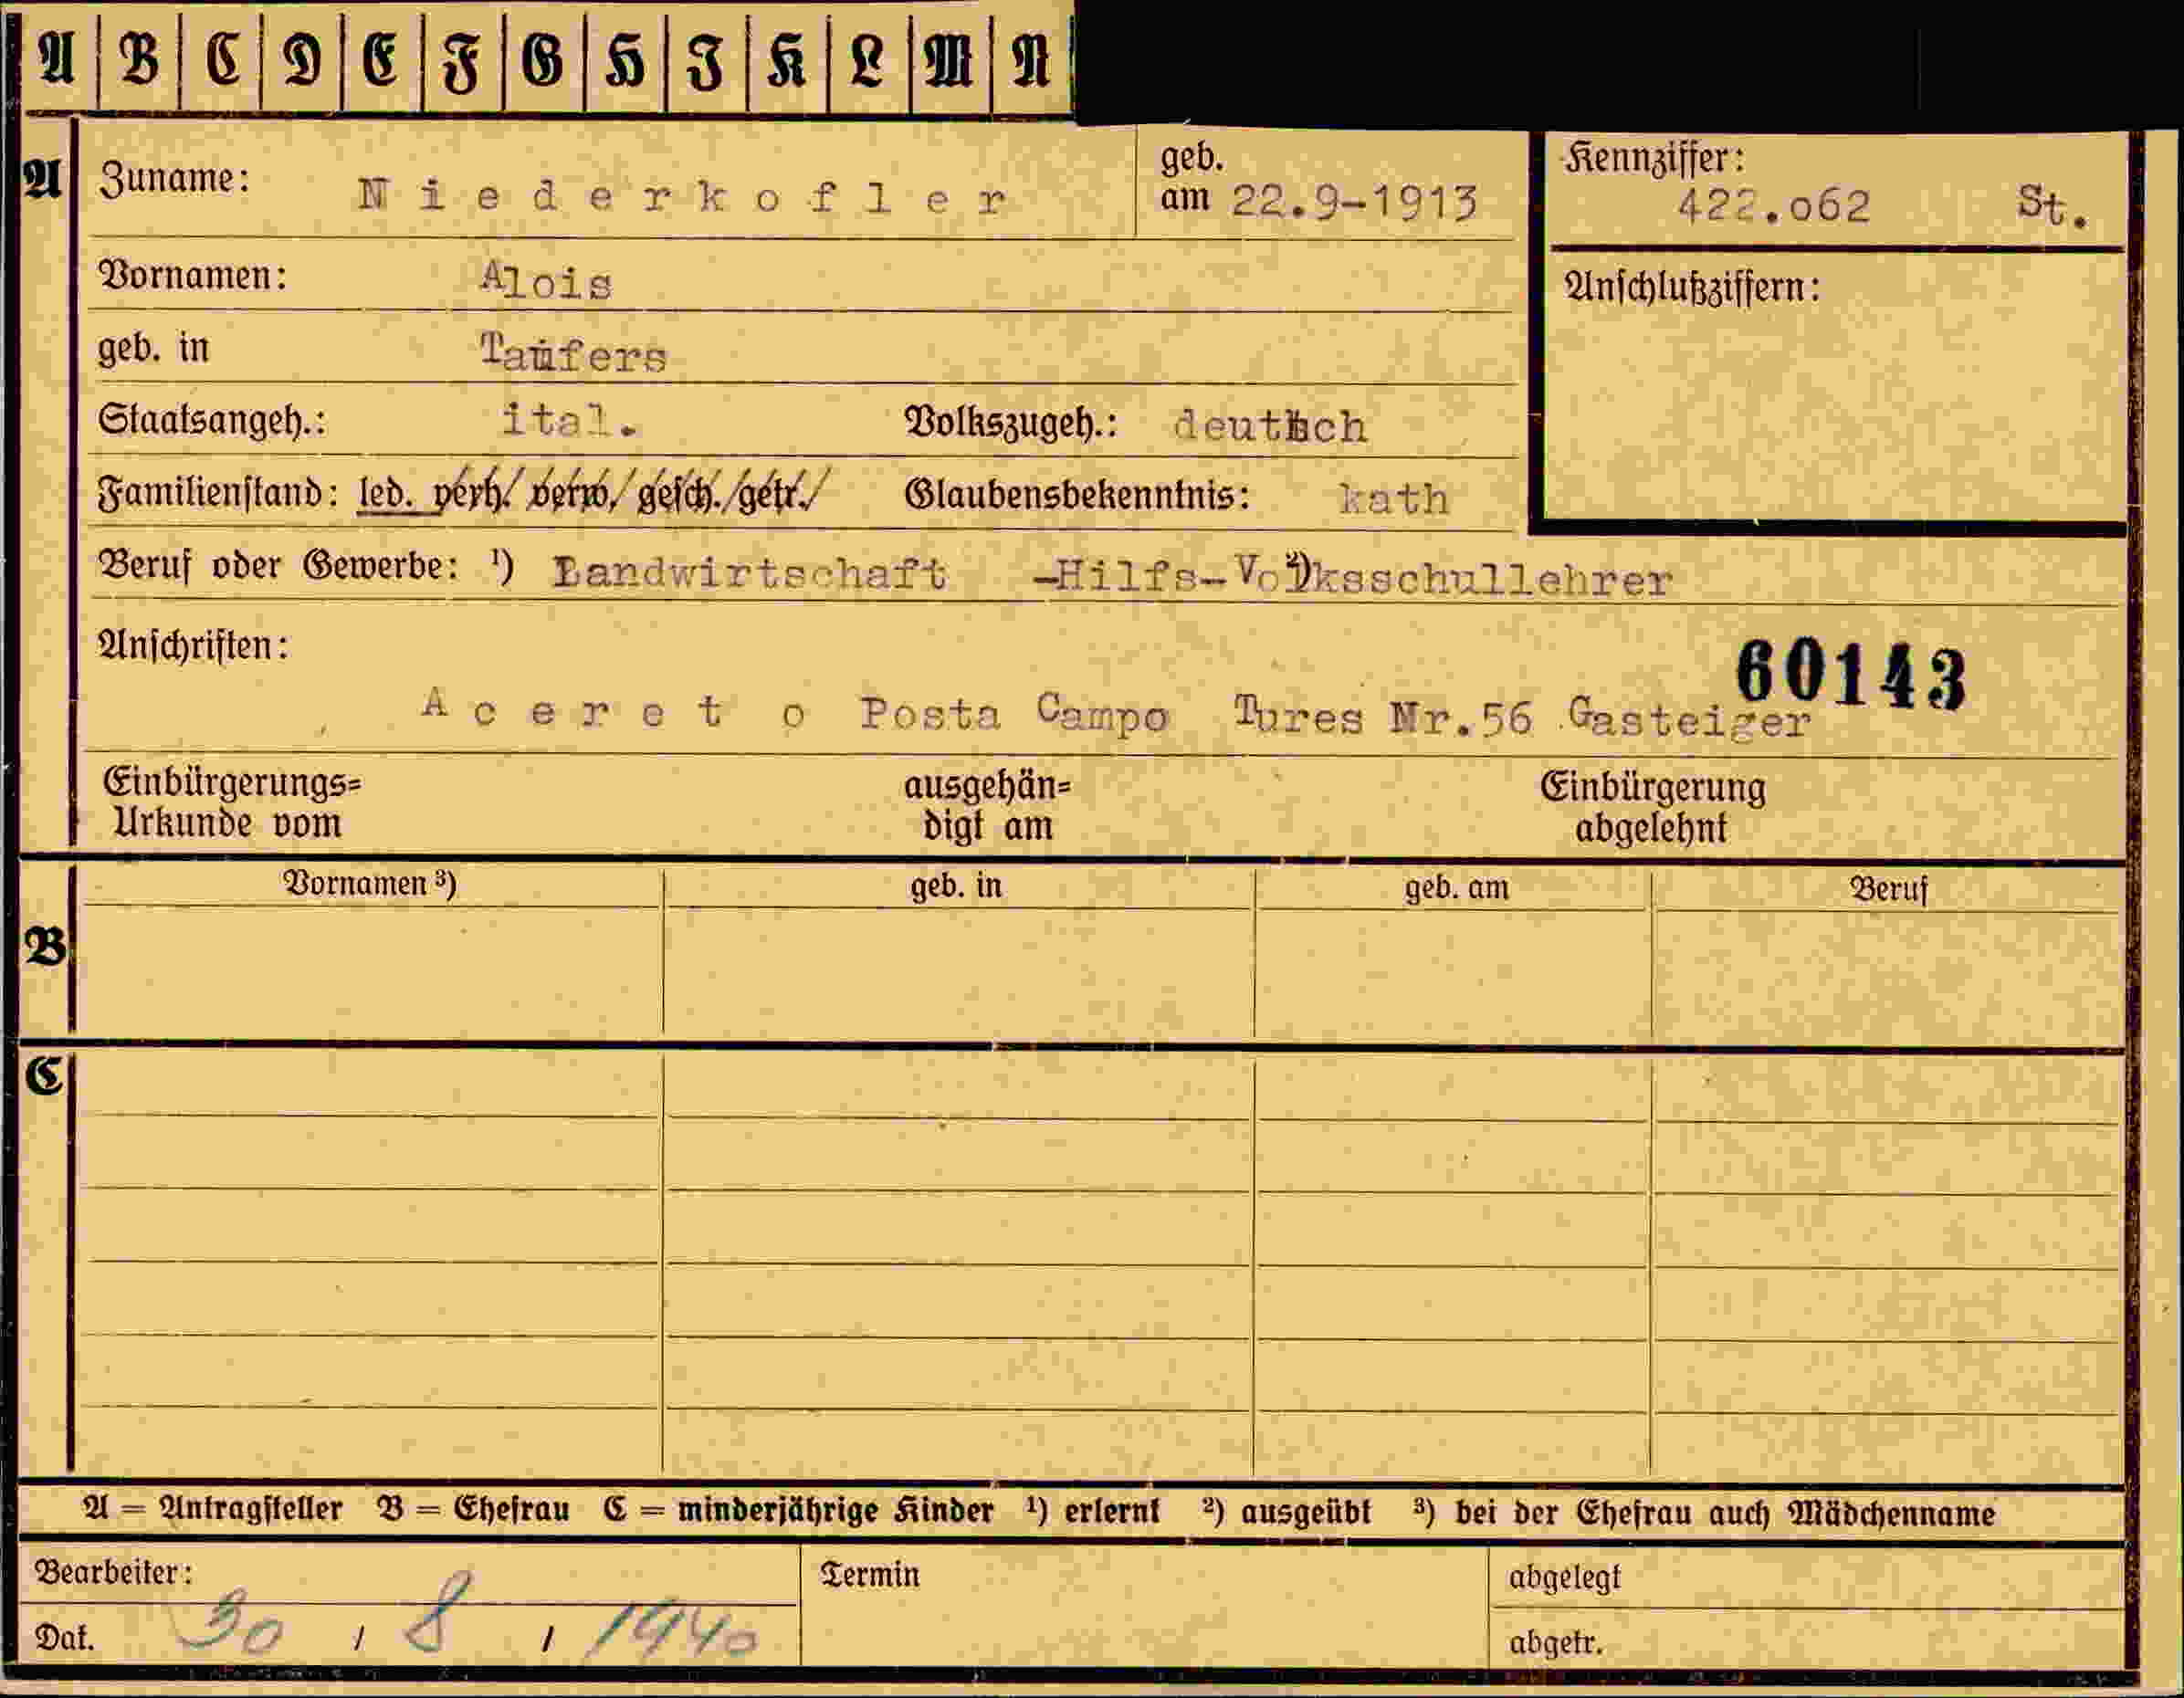 A B C D E F G H I K L M N
A Zuname: Niederkofler geb. am 22.9-1913 Kennziffer: 422.o62 St.
Vornamen: Alois Anschlußziffern:
geb. in Taufers
Staatsangeh.: ital. Volkszugeh.: deutsch
Familienstand: led. verh./ verw./ gesch./ getr./ Glaubensbekenntnis: kath
Beruf oder Gewerbe: ¹) Landwirtschaft ²) -Hilfs-Volksschullehrer
Anschriften: 60143
Acereto Posta Campo Tures Nr.56 Gasteiger
Einbürgerungs= ausgehän= Einbürgerung
Urkunde vom digt am abgelehnt
Vornamen ³) geb. in geb. am Beruf
B
C
A = Antragsteller B = Ehefrau C = minderjährige Kinder ¹) erlernt ²) ausgeübt ³) bei der Ehefrau auch Mädchenname
Bearbeiter: Termin abgelegt
Dat. 30 / 8 / 1940 abgetr.